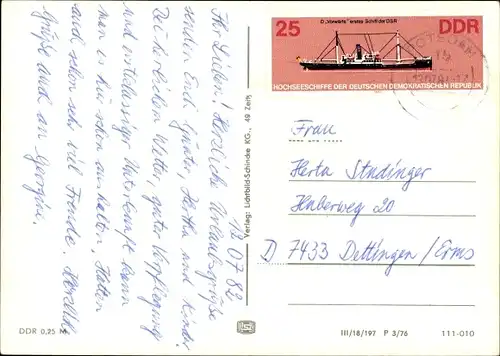 12.07.82
Ihr Lieben! Herzliche Urlaubsgrüße
senden Euch Günter, Hertha und Kinder
Bei herrlichem Wetter, guter Verpflegung
und
Unterkunft kann
man es hier schon aushalten, Hatten
auch schon sehr viel Freude.
Grüße auch an Georgine.
Verlag: Lichtbild-Schincke KG., 49 Zeitz
25
D „Vorwärts" erstes Schiff der DSR
DDR
HOCHSEESCHIFFE DER DEUTSCHEN DEMOKRATISCHEN REPUBLIK
Frau
Herta Studinger
Huberweg 20
D 7433 Dettingen/Erms
DDR 0,25 M
III/18/197 P 3/76 111-010